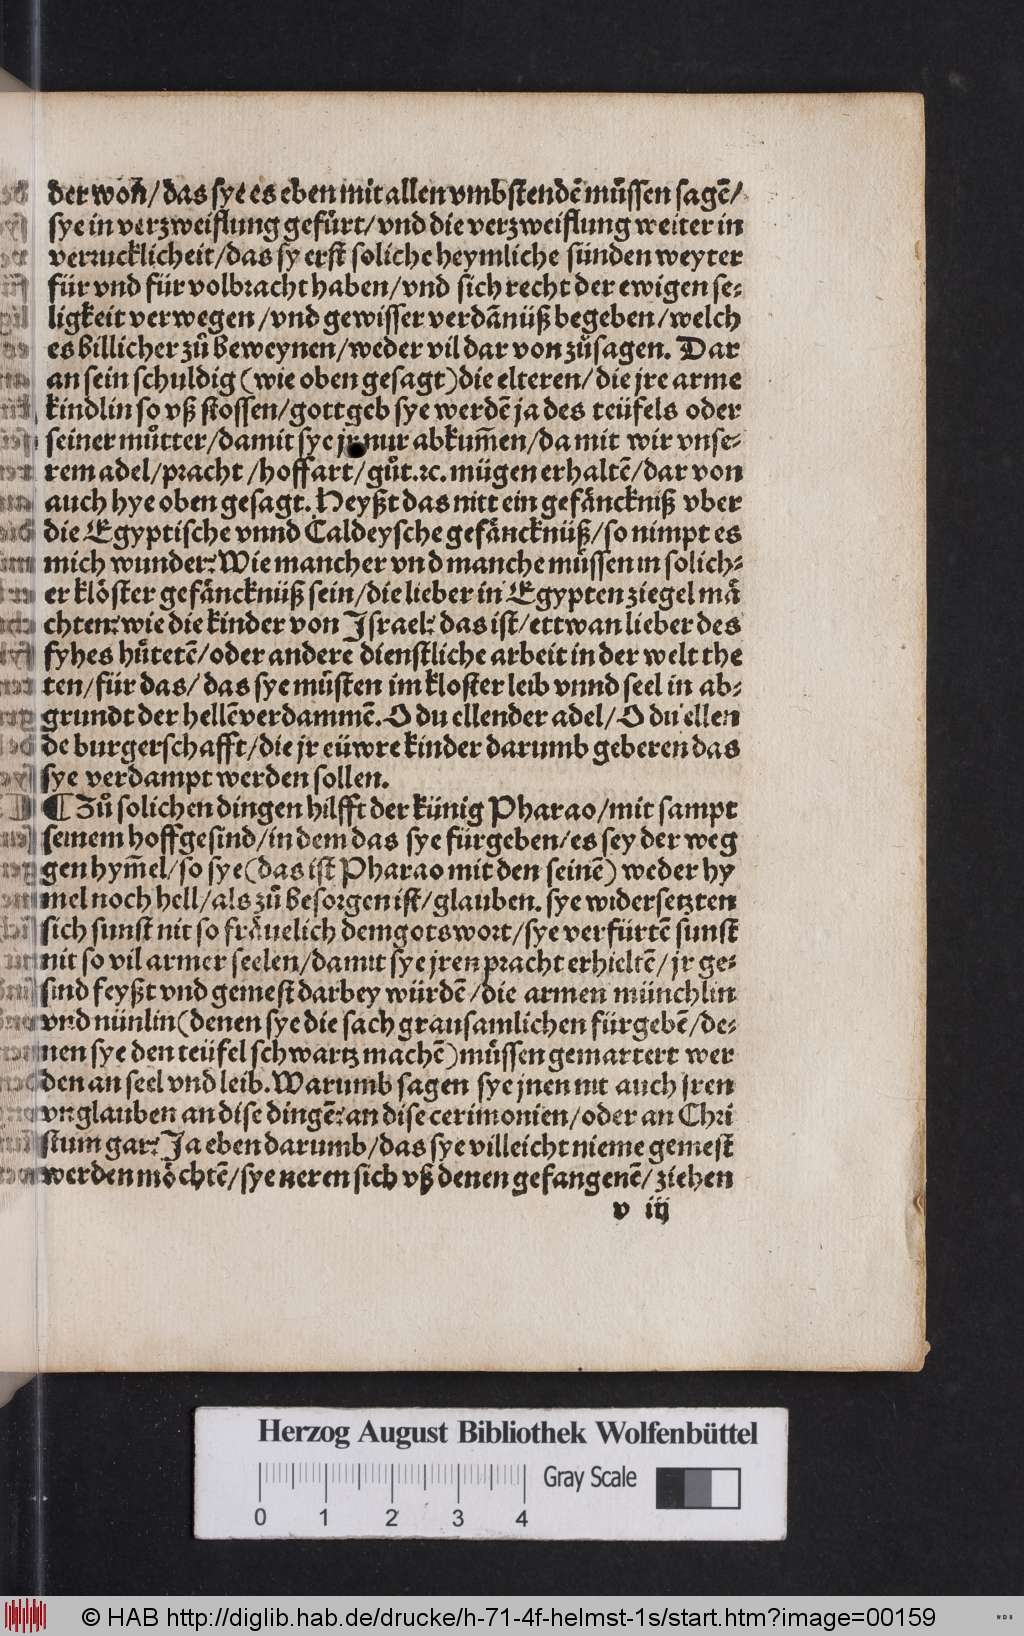 der won̄/ das sye es eben mit allen vmbstendē müssen sagē/
sye in verzweiflung gefürt/ vnd die verzweiflung weiter in
verrucklicheit/ das sy erst soliche heymliche sünden weyter
für vnd für volbracht haben/ vnd sich recht der ewigen se⸗
ligkeit verwegen/ vnd gewisser verdānüß begeben/ welch
es billicher zů beweynen/ weder vil dar von zůsagen. Dar
an sein schuldig (wie oben gesagt) die elteren/ die jre arme
kindlin so vß stossen/ gott geb sye werdē ja des teüfels oder
seiner můtter/ damit sye jr nur abkum̄en/ da mit wir vnse⸗
rem adel/ pracht/ hoffart/ gůt. ꝛc. mügen erhaltē/ dar von
auch hye oben gesagt. Heyßt das nitt ein gefänckniß vber
die Egyptische vnnd Caldeysche gefäncknüß/ so nimpt es
mich wunder: Wie mancher vnd manche müssen in solich⸗
er klöster gefäncknüß sein/ die lieber in Egypten ziegel mä
chten: wie die kinder von Israel: das ist/ ettwan lieber des
fyhes hütetē/ oder andere dienstliche arbeit in der welt the
ten/ für das/ das sye müsten im kloster leib vnnd seel in ab⸗
grundt der hellē verdammē. O du ellender adel/ O du ellen
de burgerschafft/ die jr eüwre kinder darumb geberen das
sye verdampt werden sollen.
¶ Zů solichen dingen hilfft der künig Pharao/ mit sampt
seinem hoffgesind/ in dem das sye fürgeben/ es sey der weg
gen hym̄el/ so sye (das ist Pharao mit den seinē) weder hy
mel noch hell/ als zů besorgen ist/ glauben. sye widersetzten
sich sunst nit so fräuelich dem gotswort/ sye verfürtē sunst
nit so vil armer seelen/ damit sye jren pracht erhieltē/ jr ge⸗
sind feyßt vnd gemest darbey würdē/ die armen münchlin
vnd nünlin (denen sye die sach grausamlichen fürgebē/ de⸗
nen sye den teüfel schwartz machē) müssen gemartert wer
den an seel vnd leib. Warumb sagen sye jnen nit auch jren
vnglauben an dise dingē: an dise cerimonien/ oder an Chri
stum gar: Ja eben darumb/ das sye villeicht nieme gemest
werden möchtē/ sye neren sich vß denen gefangenē/ ziehen
v iij
Herzog August Bibliothek Wolfenbüttel
Gray Scale
0 1 2 3 4
© HAB http://diglib.hab.de/drucke/h-71-4f-helmst-1s/start.htm?image=00159
WDB